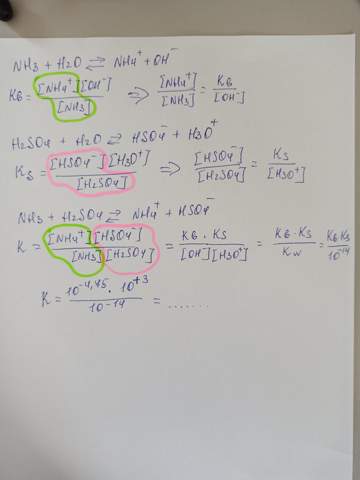 NH3 + H2O ⇌ NH4⁺ + OH⁻
KB = [NH4⁺][OH⁻] / [NH3] ⇒ [NH4⁺] / [NH3] = KB / [OH⁻]
H2SO4 + H2O ⇌ HSO4⁻ + H3O⁺
KS = [HSO4⁻][H3O⁺] / [H2SO4] ⇒ [HSO4⁻] / [H2SO4] = KS / [H3O⁺]
NH3 + H2SO4 ⇌ NH4⁺ + HSO4⁻
K = [NH4⁺][HSO4⁻] / [NH3][H2SO4] = KB · KS / [OH⁻][H3O⁺] = KB · KS / Kw = KB KS / 10⁻¹⁴
K = 10⁻⁴,⁴⁵ · 10⁺³ / 10⁻¹⁴ = .......